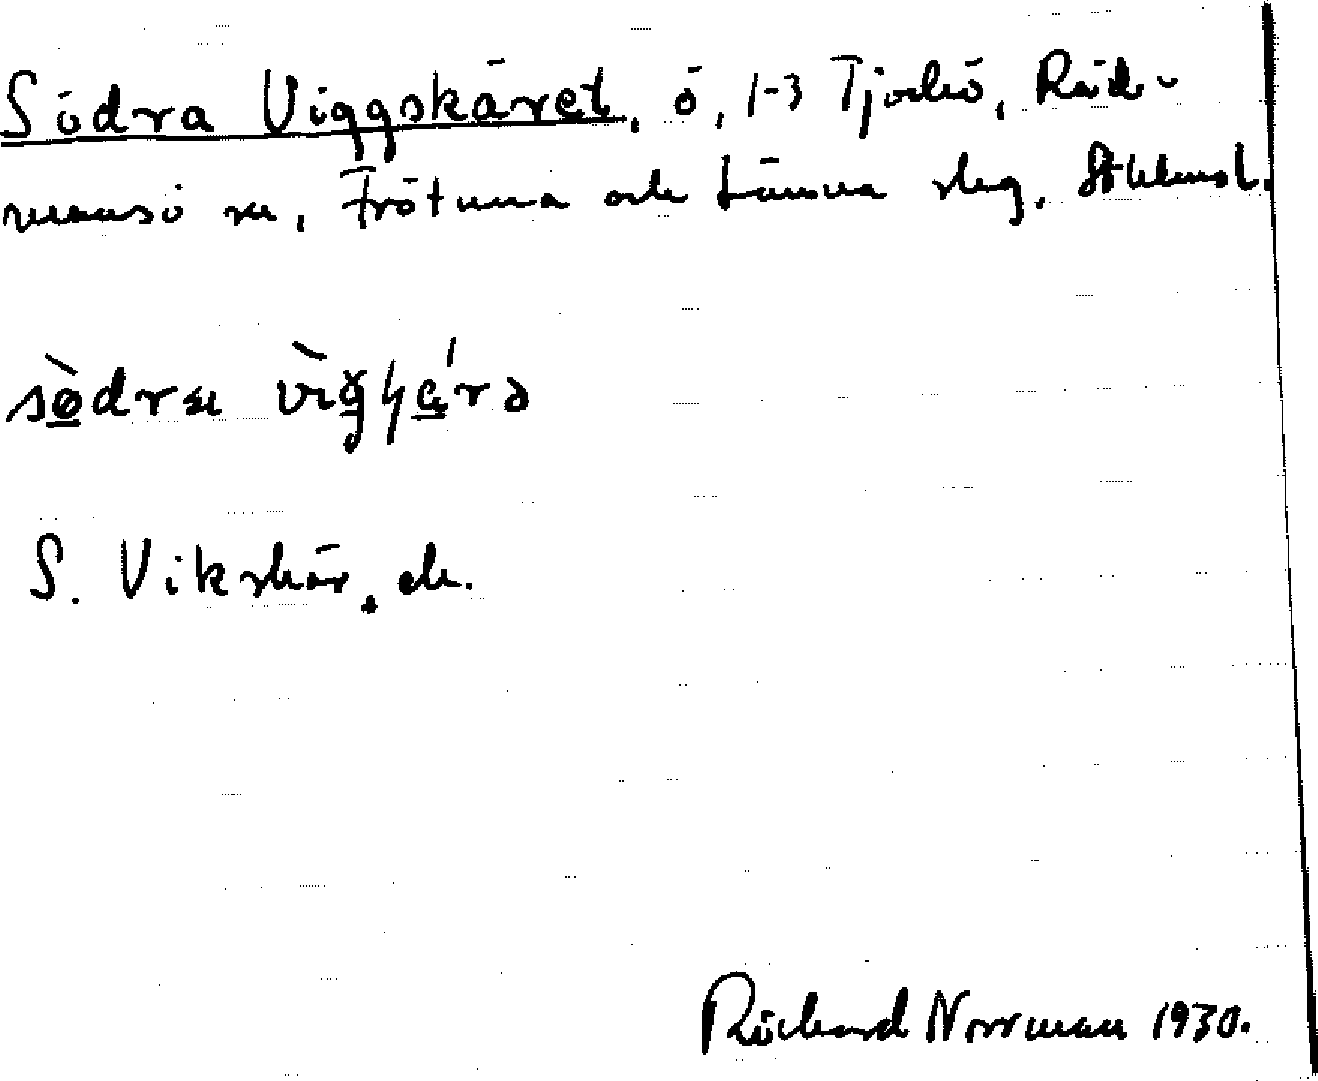 Södra Viggskäret, ö, 1-3 Tjockö, Räd-
mansö sn, Frötuna och Länna skg. Sthlms l.
sø̀dra vìgʃɛ́rə
S. Vikskär, ek.
Richard Norrman 1930.